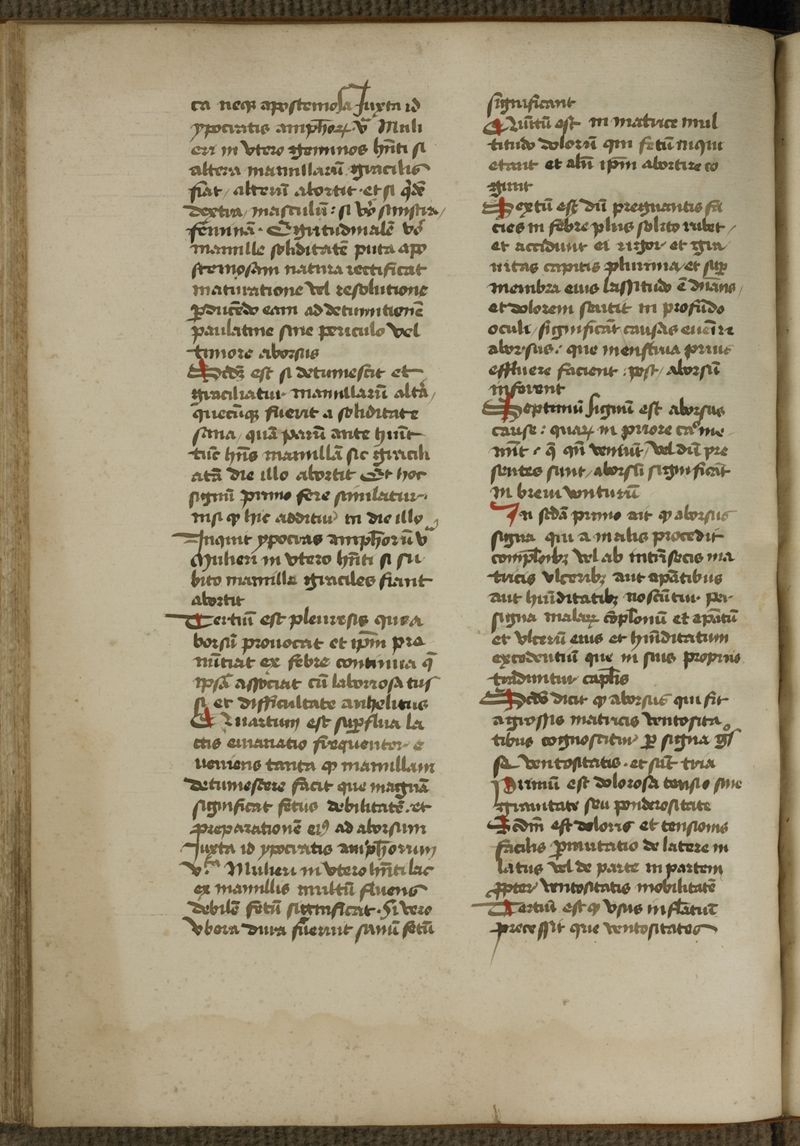 ca neqꝫ apostemosa Juxta id
ypocratis amphorꝝ v̊ Muli
eri in vtero geminos hn̄ti si
altera mamillarū gracilis
fiat / alterū abortit · et si q̇dē
dextra / masculū : si v̊o sinistra /
femīnā · Egritudinalē v̊o
mamille soliditatē puta apo
stemosam natura rectificat
maturatione vel resolutione
ꝓducēdo eam ad detumitionē
paulatine sine periculo vel
timore aborsus
Scd̄m est si detumescit et
graciliatur mamillarū alta /
quecūqꝫ fuerit a soliditate
sana / quā parū ante hūit
tūc hn̄s mamillā sic gracili
atā die illo abortit Et hoc
signū primo fere similatur
nisi ꝙ hic additur in die illo
Inquit ypocras amphorū v
Mulieri in vtero hn̄ti si su
bito mamille graciles fiant
abortit
Tertiū est pleuresis que a
borsū prouocat et ip̄m pro
nūtiat ex febre continua q̄
ip̄sā associat cū laboriosa tus
si et difficultate anhelitus
Quartum est suꝑflua la
ctis emanatio frequenter e
ueniens tanta ꝙ mamillam
detumescere facit que magnā
significat fetus debilitatē · et
preparationē eiꝰ ad aborsum
Juxta id ypocratis amphorum
v Mulieri in vtero hn̄ti lac
ex mamillis multū fluens
debilē fetū significat · Si vero
vbera dura fuerint sanū fetū
significant
Quītū est in matrice mul
titudo dolorū qui fetū inqui
etant et ad ip̄m abortire co
gunt
Sextū est dū pregnantis fa
cies in febre plus solito rubet /
et accidunt ei rigor et gra
uitas capitis plurima / et suꝑ
membra eius lassitudo ē dn̄ans /
et dolorem sentit in profūdo
oculi / significāt causas euenire
aborsus : que menstrua prius
effluere facient : post / aborsū
inferent
Septimū signū est aborsus
cause : quaꝝ in priore
q̄ qn̄ veniūt / vel dū pre
sentes sunt / aborsū significāt
in breui venturū
In scd̄a primo ait ꝙ aborsus
signa qui a malis procedit
complōibꝫ vel ab intrīsecis ma
tricis vlceribꝫ aut apātibus
aut hūiditatibꝫ noscūtur per
signa malaꝝ cōplōnū et apātū
et vlcerū eius et hūiditatum
excedentiū que in suis propriis
traduntur capl̄is
Scd̄o dicit ꝙ aborsus qui fit
a grossis matricis ventosita
tibus cognoscitur ꝑ signa
ventositatis · et sūt tria
Primū est dolorosa tensio sine
grauitate seu ponderositate
Scd̄m est doloris et tensionis
facilis ꝑmutatio de latere in
latus vel de parte in partem
ꝓpter ventositatis mobilitatē
Tertiū est ꝙ vsus inflātiū
precessit que ventositates